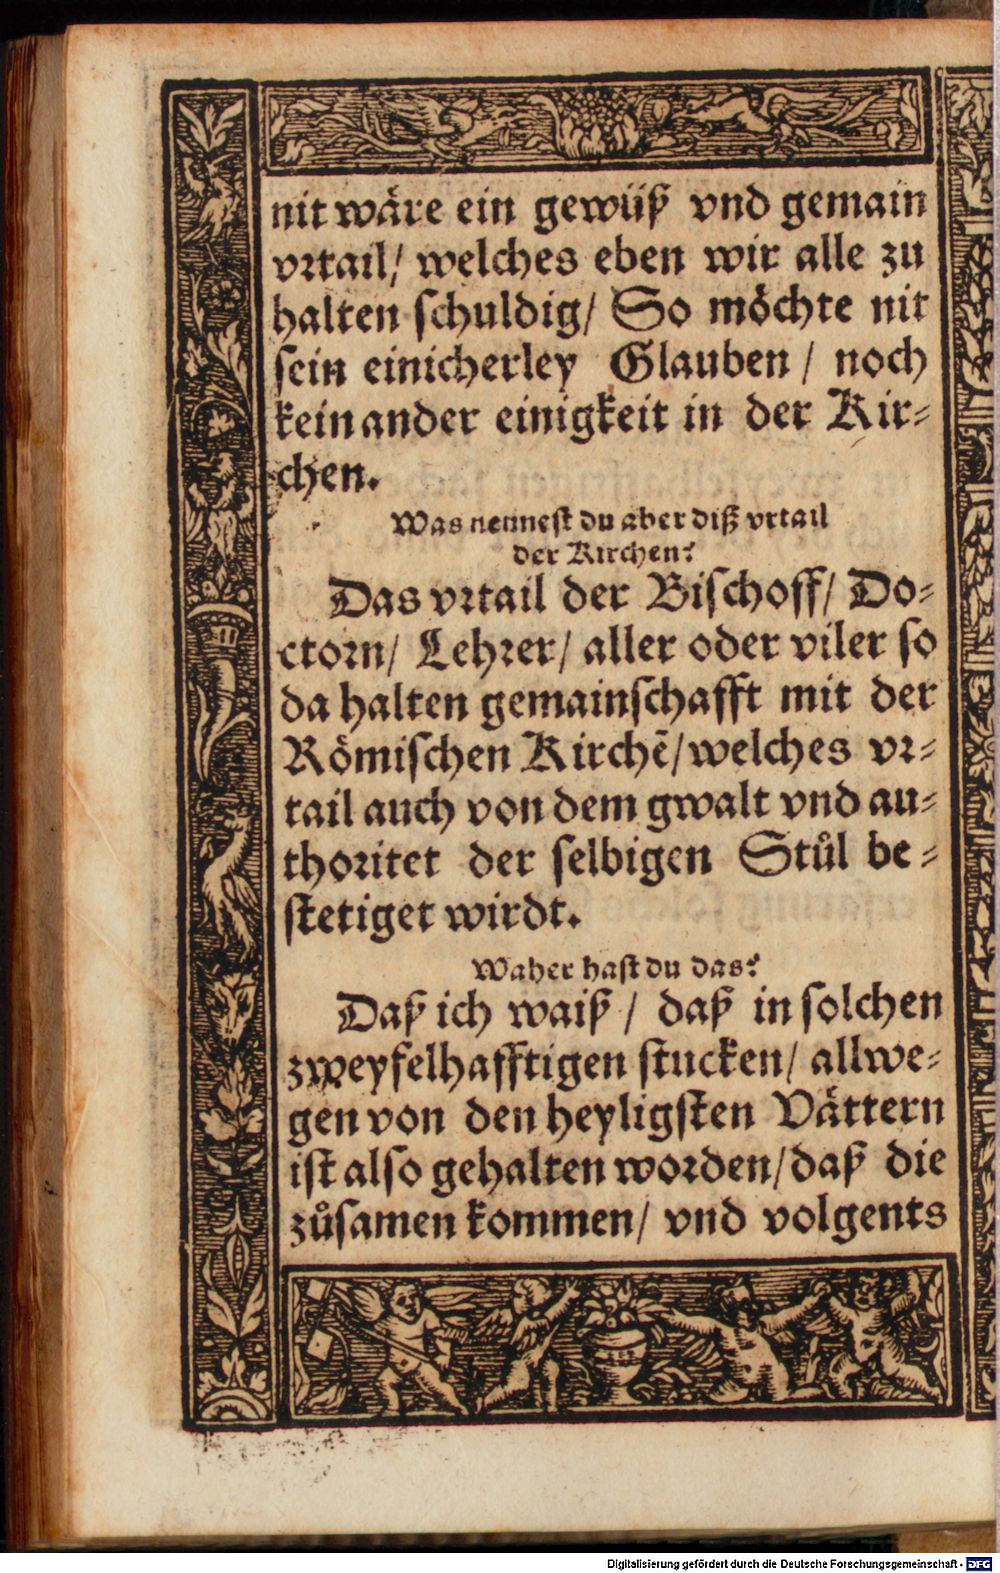 nit wäre ein gewüß vnd gemain
vrtail/ welches eben wir alle zu
halten schuldig/ So möchte nit
sein einicherley Glauben / noch
kein ander einigkeit in der Kir⸗
chen.
Was nennest du aber diß vrtail
der Kirchen?
Das vrtail der Bischoff/ Do⸗
ctorn/ Lehrer/ aller oder viler so
da halten gemainschafft mit der
Römischen Kirchẽ/welches vr⸗
tail auch von dem gwalt vnd au⸗
thoritet der selbigen Stůl be⸗
stetiget wirdt.
Waher hast du das?
Daß ich waiß / daß in solchen
zweyfelhafftigen stucken/ allwe⸗
gen von den heyligsten Vättern
ist also gehalten worden/daß die
zůsamen kommen/ vnd volgents
Digitalisierung gefördert durch die Deutsche Forschungsgemeinschaft - DFG